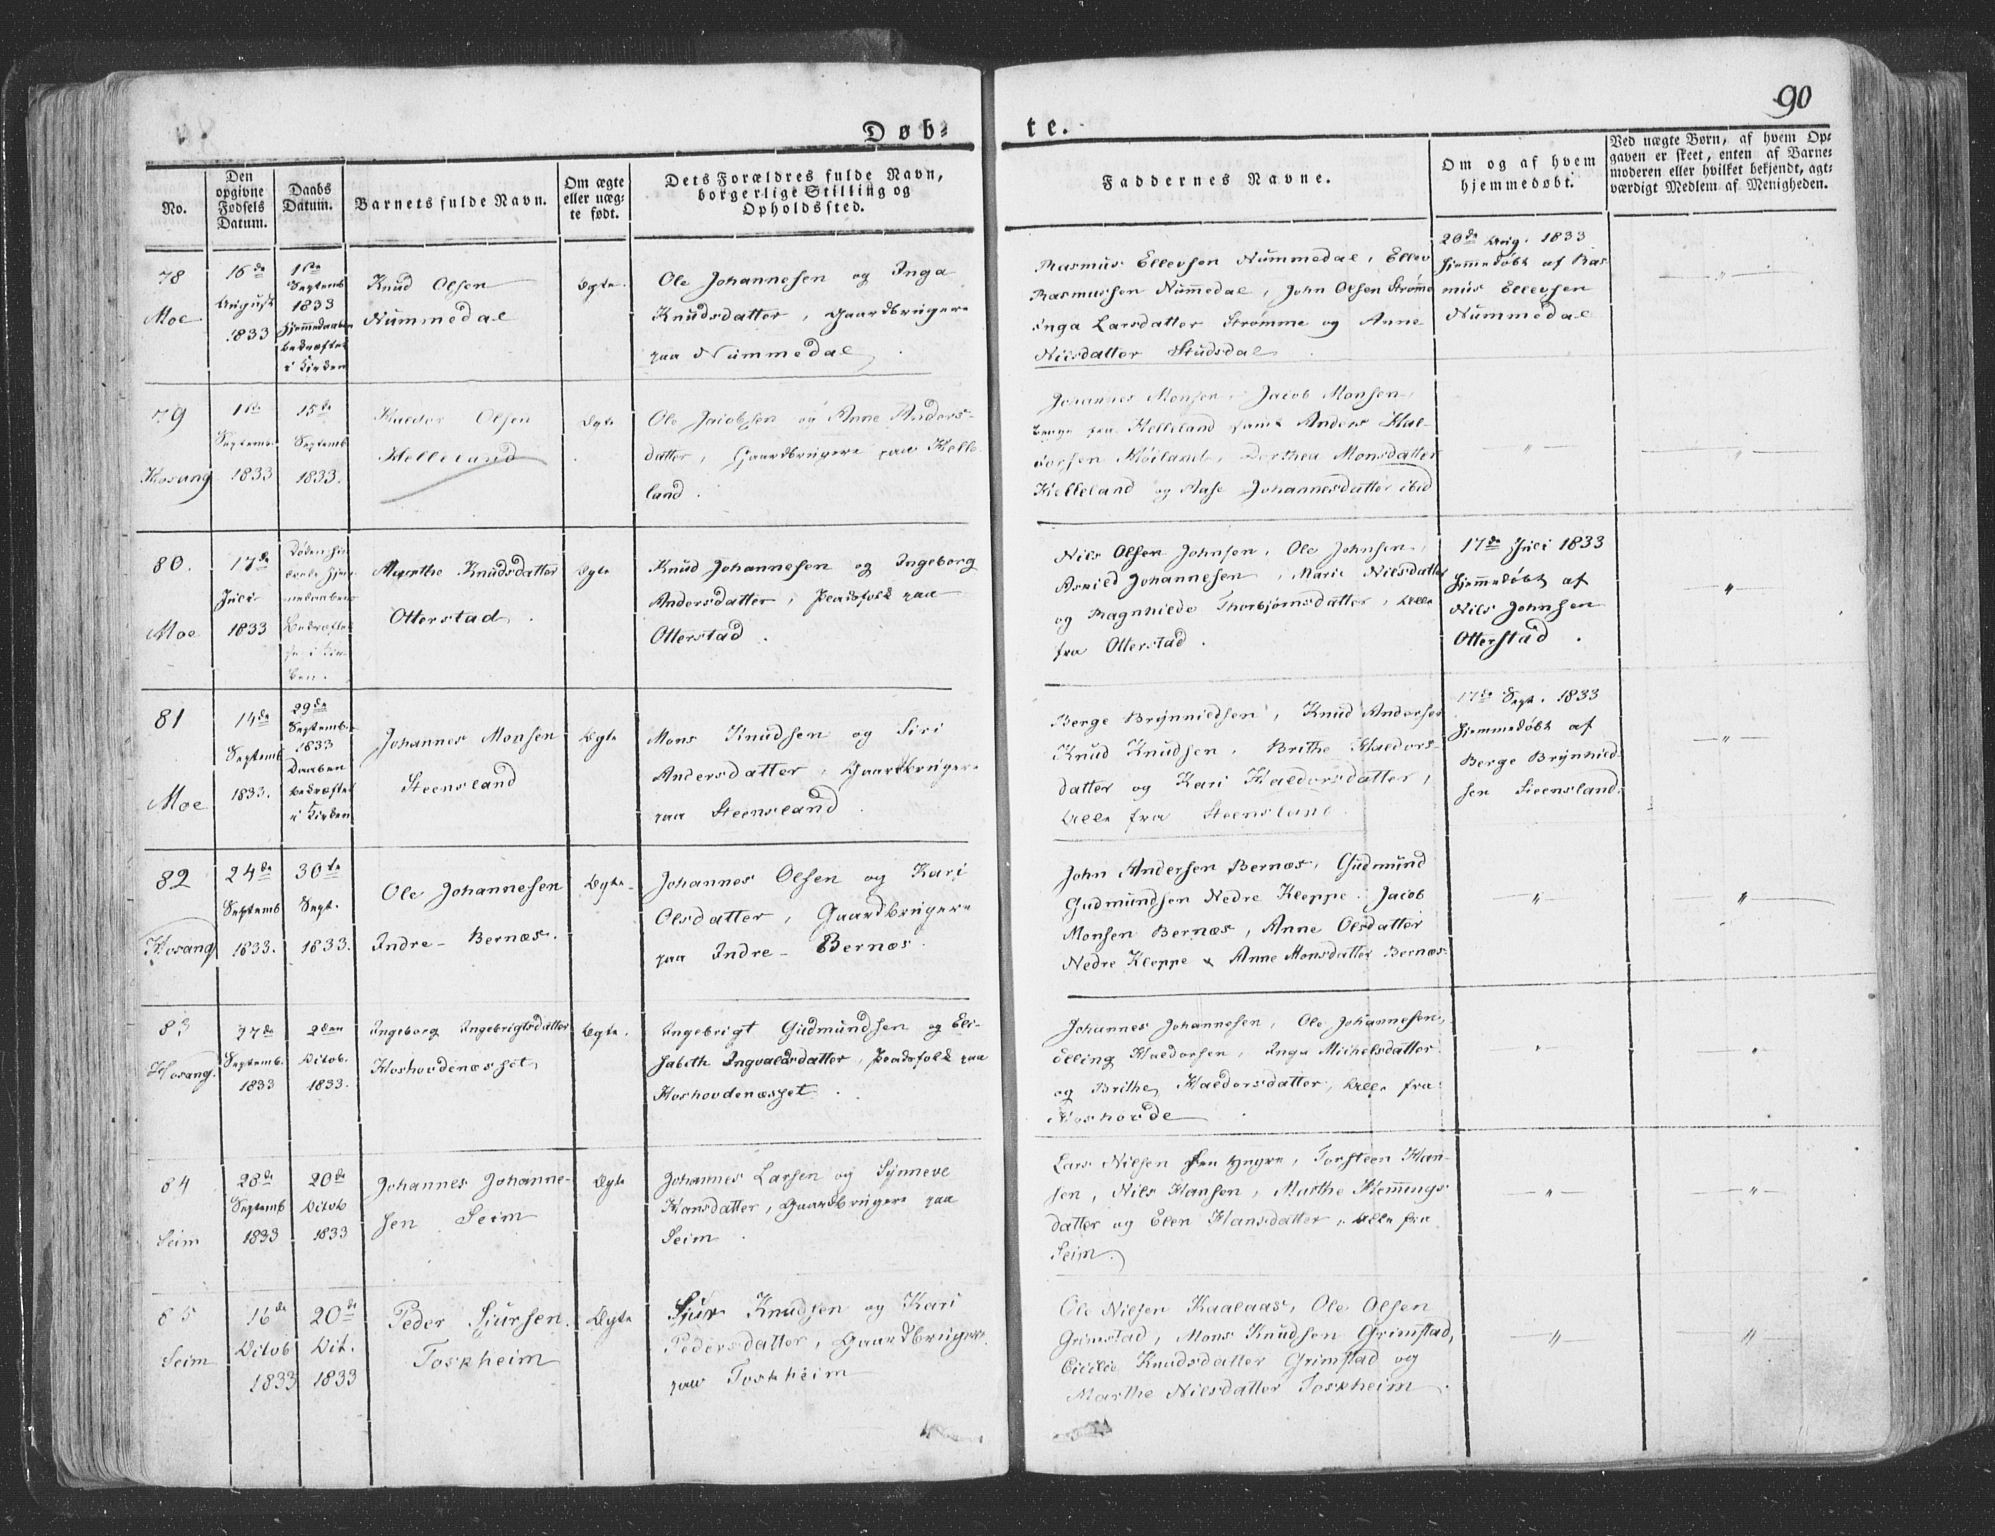 90
Døb-
te.
No.
Den
opgivne
Fødsels
Datum.
Daabs
Datum.
Barnets fulde Navn.
Om ægte
eller uæg-
te født.
Dets Forældres fulde Navn,
borgerlige Stilling og
Opholdssted.
Faddernes Navne.
Om og af hvem
hjemmedøbt.
Ved uægte Børn, af hvem Op-
gaven er skeet, enten af Barne-
moderen eller hvilket bekjendt, agt-
værdigt Medlem af Menigheden.
78
Moe
16de
August
1833
1ste
Septemb
1833
Hjemmedaaben
bekræftet
i Kirken
Knud Olsen
Nummedal
Ægte.
Ole Johannesen og Inga
Knudsdatter, Gaardbrugere
paa Nummedal
Rasmus Ellevsen Nummedal, Ellev
Rasmussen Nummedal, John Olsen Strømme
Inga Larsdatter Strømme og Anne
Nilsdatter Studsdal
20de Aug. 1833
hjemmedøbt af Ras
mus Ellevsen
Nummedal
"
79
Hosang
1ste
Septemb.
1833
15de
Septemb
1833.
Haldor Olsen
Helleland
Ægte
Ole Jacobsen og Anne Anders-
datter, Gaardbrugere paa Helle-
land.
Johannes Monsen, Jacob Monsen,
begge fra Helleland samt Anders Hal-
dorsen Høiland, Dorthea Monsdatter
Helleland og Aase Johannesdatter ibid
"
"
80.
Moe
17de
Juli
1833
Døden
bekræftet
i Kir-
ken.
Myrthe Knudsdatter
Otterstad.
Ægte
Knud Johannesen og Ingeborg
Andersdatter, Pladsfolk paa
Otterstad.
Nils Olsen Johnsen, Ole Johnsen,
Arnild Johannesen, Marie Nilsdatter
og Ragnhilde Thorbjørnsdatter, alle
fra Otterstad.
17de Juli 1833
hjemmedøbt af
Nils Johnsen
Otterstad.
"
81
Moe
14de
Septemb
1833.
29de
Septemb.
1833
Daaben
bekræftet
i Kirken
Johannes Monsen
Steensland
Ægte
Mons Knudsen og Siri
Andersdatter, Gaardbrugere
paa Steensland.
Berge Brynnildsen, Knud Andersen
Knud Knudsen, Brithe Haldors-
datter og Kari Haldorsdatter,
alle fra Steensland.
17de Sept. 1833
hjemmedøbt af
Berge Brynhild-
sen Steensland.
"
82
Hosang
24de
Septemb
1833.
30te
Sept.
1833.
Ole Johannesen
Indre-Bernæs.
Ægte.
Johannes Olsen og Kari
Olsdatter, Gaardbrugere
paa Indre-Bernæs.
John Andersen Bernæs, Gudmund
Gudmundsen Nedre Kleppe. Jacob
Monsen Bernæs, Anne Olsdatter
Nedre Kleppe & Anne Monsdatter Bernæs
"
"
83
Hosang.
27de
Septemb.
1833
2den
Octob.
1833.
Ingeborg Ingebrigtsdatter
Hoshovdenæsset
Ægte.
Ingebrigt Gudmundsen og Eli-
sabeth Ingvaldsdatter, Pladsfolk paa
Hoshovdenæsset.
Johannes Johannesen, Ole Johannesen,
Elling Haldorsen, Inga Michelsdatter
og Brithe Haldorsdatter, alle fra
Hoshovde
"
"
84
Seim
28de
Septemb
1833
20de
Octob
1833
Johannes Johanne-
sen Seim
Ægte
Johannes Larsen og Synneve
Hansdatter, Gaardbrugere paa
Seim.
Lars Nilsen den yngre, Torsteen Han-
sen, Nils Hansen, Marthe Flemmings
datter og Elen Hansdatter, alle fra
Seim.
"
"
85
Seim
16de
Octob
1833
20de
Oct.
1833
Peder Siursen.
Toskheim
Ægte
Sjur Knudsen og Kari
Pedersdatter, Gaardbrugere
paa Toskheim
Ole Nilsen Kaalaas, Ole Olsen
Grimstad, Mons Knudsen Grimstad,
Cicilie Knudsdatter Grimstad og
Marthe Nilsdatter Toskheim.
"
"